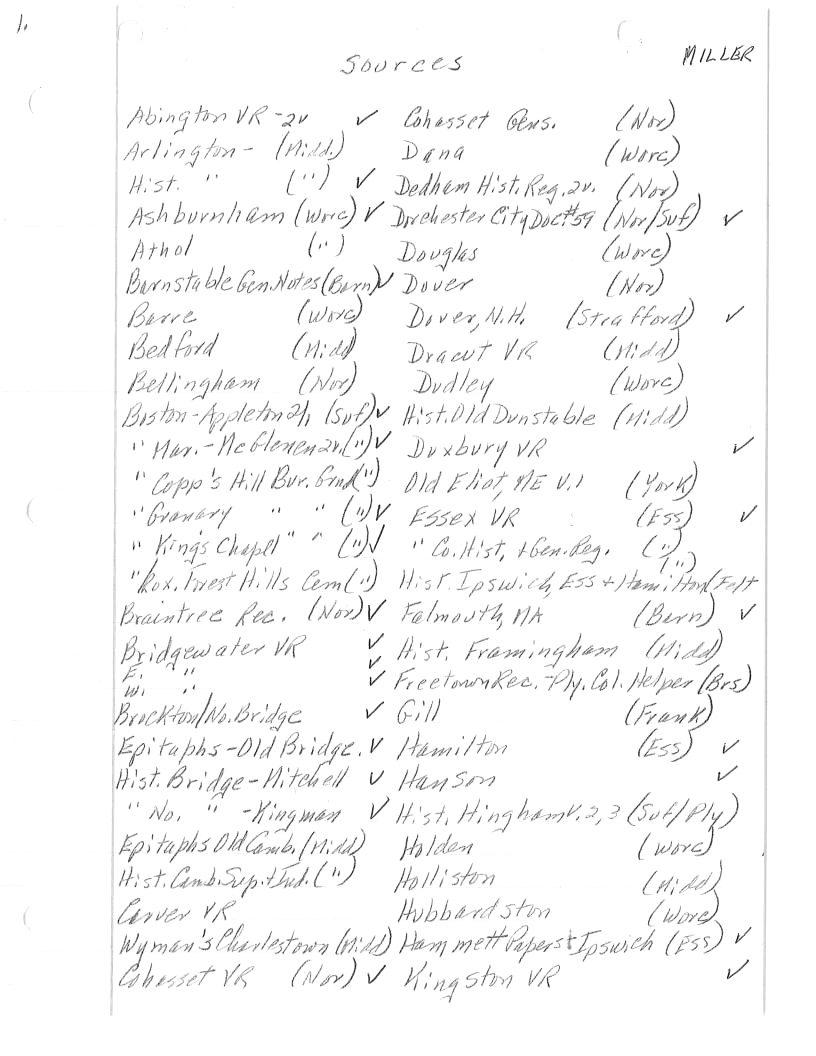 1.
MILLER
Sources
Abington VR -2v ✓
Arlington - (Midd.)
Hist. " (") ✓
Ashburnham (Worc) ✓
Athol (")
Barnstable Gen. Notes (Barn) ✓
Barre (Worc)
Bedford (Midd)
Bellingham (Nor)
Boston-Appleton 2v (Suf) ✓
" Mar. - McGlenen 2v. (") ✓
" Copp's Hill Bur. Grnd (")
" Granary " " (") ✓
" King's Chapel " " (") ✓
" Rox. Forest Hills Cem (")
Braintree Rec. (Nor) ✓
Bridgewater VR ✓
E. " ✓
W. " ✓
Brockton/No. Bridge ✓
Epitaphs - Old Bridge. ✓
Hist. Bridge - Mitchell ✓
" No. " - Kingman ✓
Epitaphs Old Camb. (Midd)
Hist. Camb. Sup. + Ind. (")
Carver VR
Wyman's Charlestown (Midd)
Cohasset VR (Nor) ✓
Cohasset Gens. (Nor)
Dana (Worc)
Dedham Hist. Reg. 2v. (Nor)
Dorchester City Doc #59 (Nor/Suf) ✓
Douglas (Worc)
Dover (Nor)
Dover, N.H. (Strafford) ✓
Dracut VR (Midd)
Dudley (Worc)
Hist. Old Dunstable (Midd)
Duxbury VR ✓
Old Eliot, ME V.1 (York)
Essex VR (Ess) ✓
" Co. Hist. + Gen. Reg. (")
Hist. Ipswich, Ess + Hamilton (Felt (")
Falmouth, MA (Barn) ✓
Hist. Framingham (Midd)
Freetown Rec. - Ply. Col. Helper (Brs)
Gill (Frank)
Hamilton (Ess) ✓
Hanson ✓
Hist. Hingham V. 2, 3 (Suf/Ply)
Holden (Worc)
Holliston (Midd)
Hubbardston (Worc)
Hammett Papers + Ipswich (Ess) ✓
Kingston VR ✓